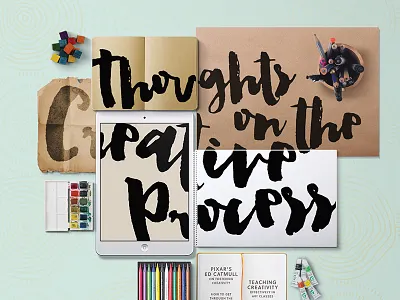 thoughts
on the
Creative
Process
PIXAR'S
ED CATMULL
ON FOSTERING
CREATIVITY
HOW TO GET
THROUGH THE
TEACHING
CREATIVITY
EFFECTIVELY IN
ART CLASSES